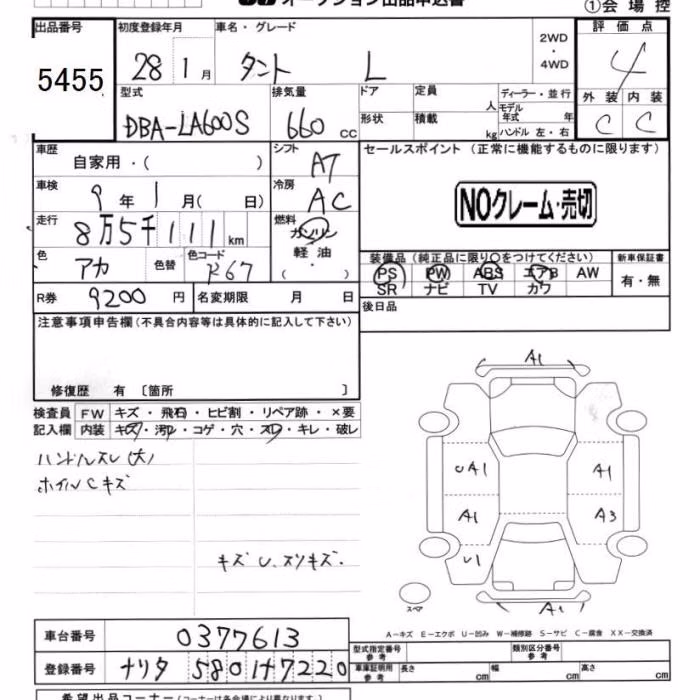 オークション出品申込書
①会場控
出品番号 初度登録年月 車名・グレード 評価点
5455 28 1月 タント L 2WD・4WD 4
型式 排気量 ドア 定員 人 ディーラー・並行 外装 内装
DBA-LA600S 660cc 形状 積載 kg モデル年式 年 ハンドル 左・右 C C
車歴 自家用・( ) シフト AT セールスポイント(正常に機能するものに限ります)
車検 9年1月( 日) 冷房 AC NOクレーム・売切
走行 8万5千111km 燃料 ガソリン
軽油
・( )
色 アカ 色替 色コード R67 装備品(純正品に限り〇をつけてください) 新車保証書
PS PW ABS エアB AW 有・無
SR ナビ TV カワ
R券 9200円 名変期限 月 日 後日品
注意事項申告欄(不具合内容等は具体的に記入して下さい)
修復歴 有〔箇所 〕
検査員 FW キズ・飛石・ヒビ割・リペア跡・×要
記入欄 内装 キズ・汚れ・コゲ・穴・スレ・キレ・破レ
ハンドルスレ(大)
ホイルCキズ
キズ U. スリキズ.
A1
UA1 A1
A1 A3
U1
A1
スペア
A-キズ E-エクボ U-凹み W-補修跡 S-サビ C-腐食 XX-交換済
車台番号 0377613
登録番号 ナリタ 580 け 7220
型式指定番号 参考 類別区分番号 参考
車庫証明用 参考 長さ cm 幅 cm 高さ cm
希望出品コーナー(コーナーは各会場により異なります。)